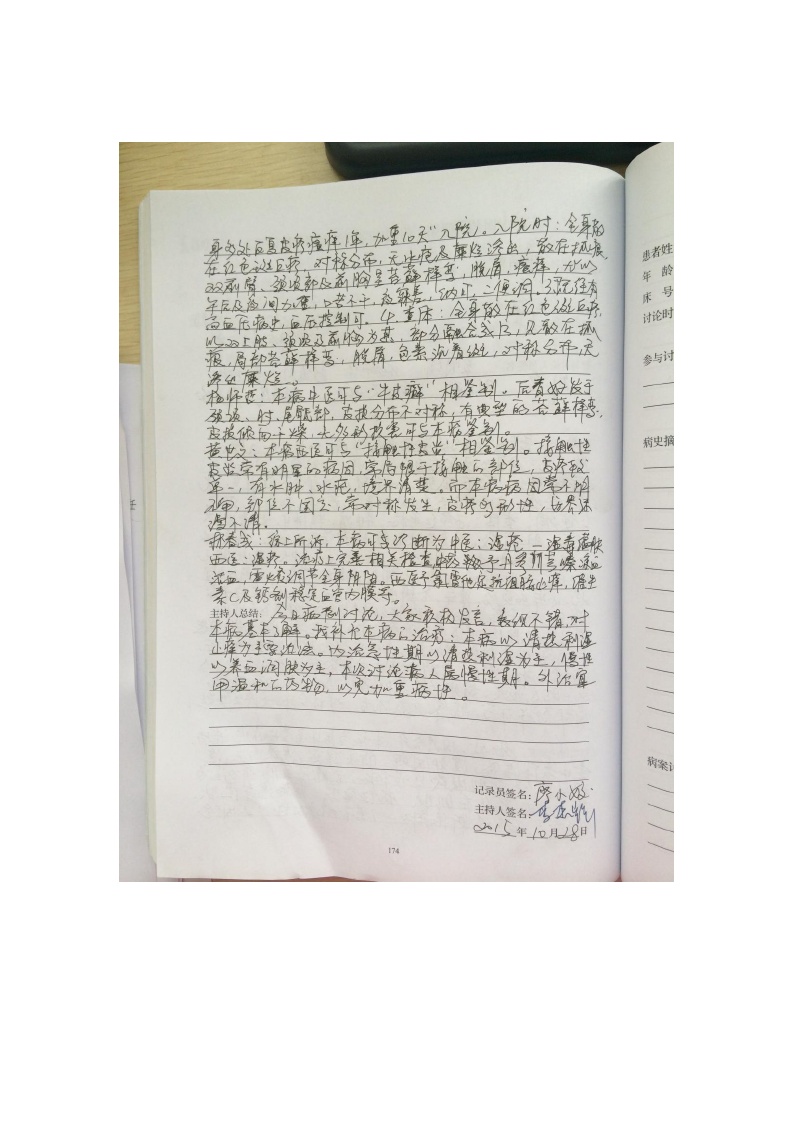 身多处反复皮疹瘙痒1年，加重10天"入院。入院时：全身散
在红色斑丘疹，对称分布，无水疱及糜烂渗出，散在抓痕，
双前臂、颈项部及前胸呈苔藓样变，脱屑，瘙痒，尤以
午后及夜间加重，口苦不干，夜寐差，纳可，二便调。既往有
高血压病史，血压控制可。查体：全身散在红色斑丘疹，
以双上肢、颈项及前胸为甚，部分融合成片，见散在抓
痕，局部苔藓样变，脱屑，色素沉着斑，对称分布，无
渗出糜烂。
本病中医可与"牛皮癣"相鉴别。后者好发于
颈项、肘、尾骶部，皮损分布不对称，有典型的苔藓样变，
皮损倾向干燥，无多形损害可与本病鉴别。
黄 ：本病西医可与"接触性皮炎"相鉴别。接触性
皮炎常有明显的病因，常局限于接触的部位，皮疹较
单一，有水肿、水疱，境界清楚。而本病病因常不明
确，部位不固定，常对称发生，皮疹多形性，边界弥
漫不清。
综上所诉，本病可支诊断为中医：湿疮－湿毒
西医：湿疹。治疗上完善相关检查，中药予
血，调节全身阴阳。西医予抗组胺止痒，维生
素C及钙剂稳定血管内膜等。
主持人总结：今日病例讨论，大家积极发言，表现不错，对
本病基本了解。我补充本病的治疗：本病以清热利湿
止痒为主要治法。内治急性期以清热利湿为主，慢性
以养血润肤为主，本次讨论病人属慢性期。外治宜
用温和的药物，以免加重病情。
记录员签名：廖小
主持人签名：
2015年10月28日
174
患者姓
年 龄
床 号
讨论时
参与讨
病史摘
病案讨